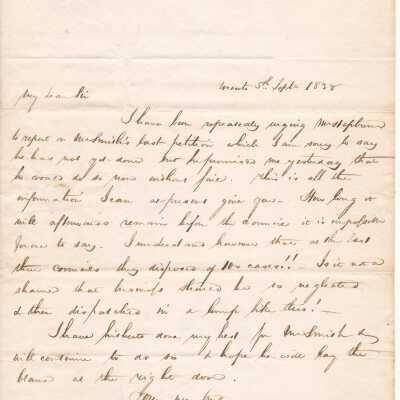 Toronto 5th Septr 1838
My Dear Sir
I have been repeatedly urging Mr Hepburne
to report on Mr Smith's last petition which I am sorry to say
he has not yet done but he promised me yesterday that
he would do so now without fail. This is all the
information I can at present give you. How long it
will afterwards remain before the Council it is impossible
for me to say. I understand however that at the last
three Councils they disposed of 110 cases!! Is it not a
shame that should be so neglected
& then dispatched in a lump like this!
I have hitherto done my best for Mr Smith &
will continue to do so & hope he will lay the
blame at the right door.